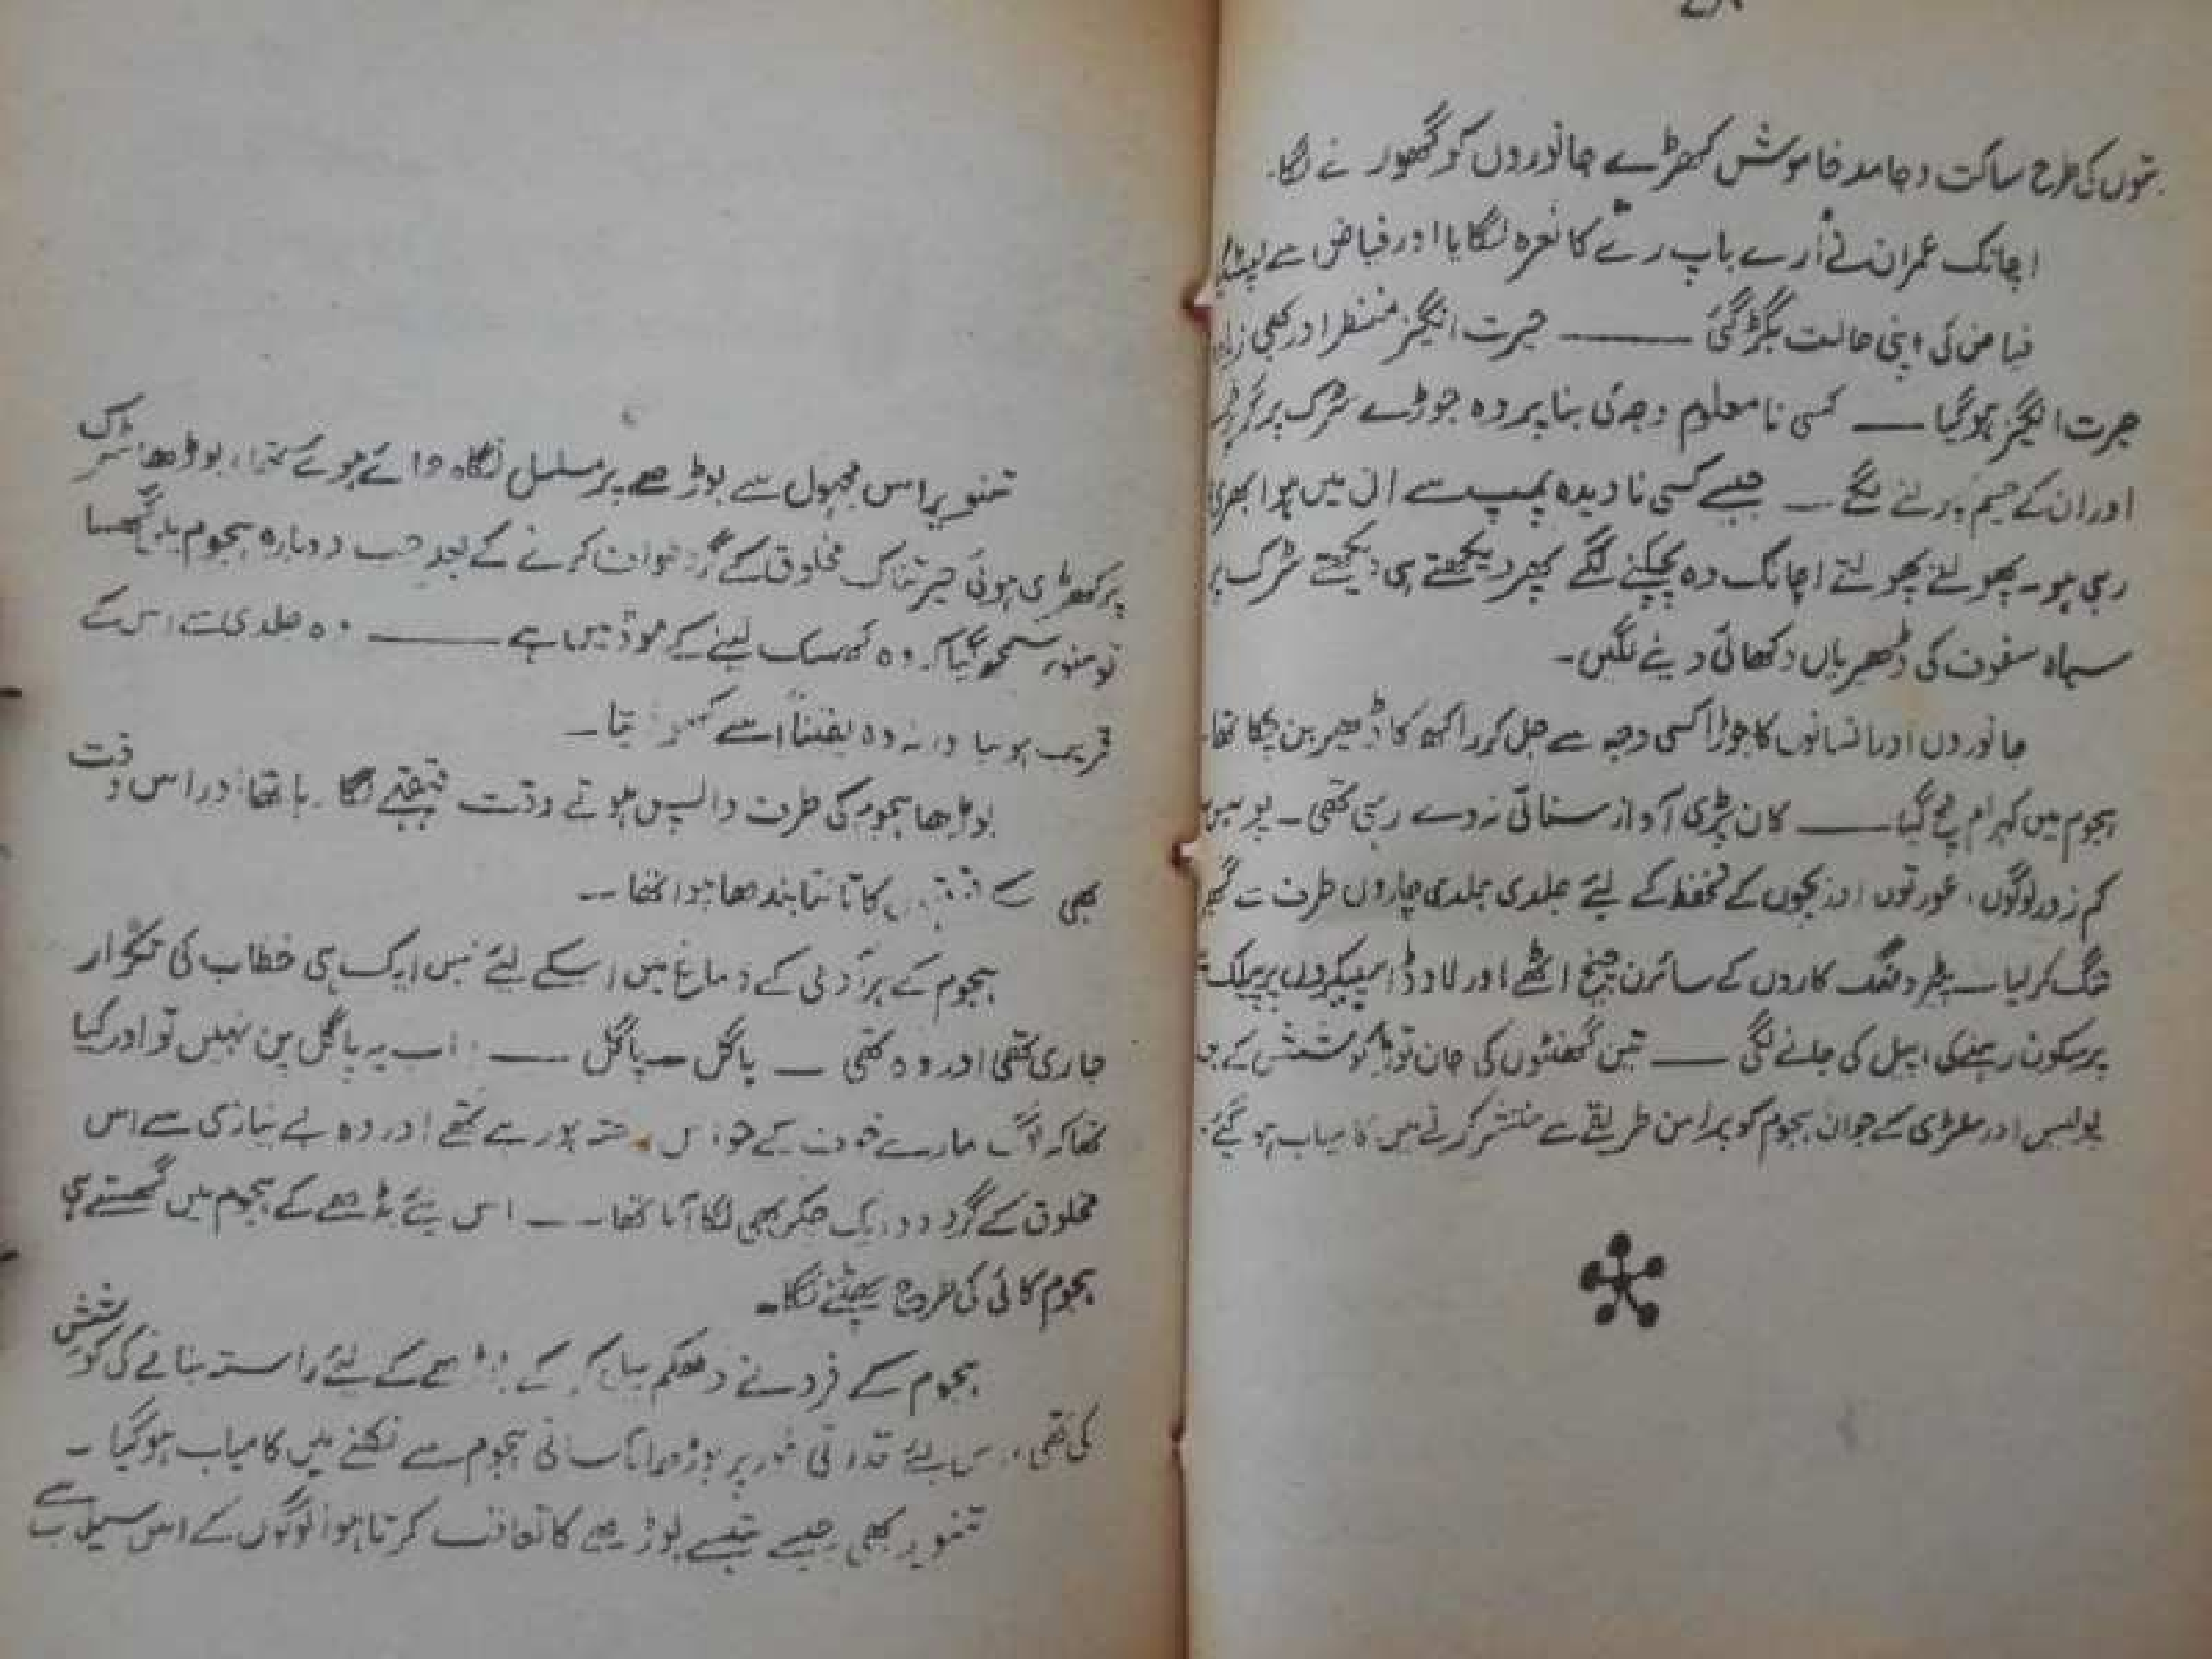 بتوں کی طرح ساکت و جامد خاموش کھڑے جانوروں کو گھور نے لگا۔
اچانک عمران نے اُرے باپ رے کا نعرہ لگایا اور فیاض سے
فیاض کی اپنی حالت بگڑ گئی ـــــ حیرت انگیز منظر اور بھی
حیرت انگیز ہو گیا ـــ کسی نا معلوم وجہ کی بنا پر وہ جوڑے سڑک پر
اور ان کے جسم ـــ جیسے کسی نادیدہ پمپ سے ان میں ہوا بھری
رہی ہو۔ پھولتے پھولتے اچانک وہ پچکنے لگے پھر دیکھتے ہی دیکھتے سڑک پر
سیاہ سفوف کی ڈھیریاں دکھائی دینے لگیں۔
جانوروں اور انسانوں کا جوڑا کسی وجہ سے جل کر راکھ کا ڈھیر بن چکا تھا۔
ہجوم میں کہرام مچ گیا ـــــ کان پڑی آواز سنائی نہ دے رہی تھی۔ پولیس
کم زور لوگوں، عورتوں اور بچوں کے تحفظ کے لئے جلدی جلدی چاروں طرف سے
تنگ کر لیا ـ پٹرولنگ کاروں کے سائرن چیخ اٹھے اور لاوڈ اسپیکروں پر پبلک
پرسکون رہنے کی اپیل کی جانے لگی ـــ تین گھنٹوں کی جان توڑ کوشش کے
پولیس اور ملٹری کے جوان ہجوم کو پر امن طریقے سے منتشر کرنے میں کامیاب ہو گئے۔
تنویر اس مجہول سے بوڑھے پر مسلسل نگاہ ہوئے تھا، بوڑھا سڑک
پر کھڑی ہوئی حیرتناک مخلوق کے گرد طواف کرنے کے بعد جب دوبارہ ہجوم میں گھسا
تو تنویر سمجھ گیا کہ وہ کھسک لینے کے موڈ میں ہے ـــــ وہ جلدی سے اس کے
قریب ہو گیا ورنہ وہ یقیناً اسے کھو دیتا۔
بوڑھا ہجوم کی طرف واپس ہوتے وقت قہقہے لگا رہا تھا اور اس وقت
بھی کے قہقہوں کا تانتا بندھا ہوا تھا۔
ہجوم کے ہر آدمی کے دماغ میں اسکے لئے بس ایک ہی خطاب کی تکرار
جاری تھی اور وہ تھی ـــ پاگل ـ پاگل ـــ اب یہ پاگل پن نہیں تو اور کیا
تھا کہ لوگ مارے خوف کے ہو رہے تھے اور وہ بے نیازی سے اس
مخلوق کے گرد دو ایک چکر بھی لگا آیا تھا ـــ اس لئے بڈھے کے ہجوم میں گھستے ہی
ہجوم کائی کی طرح پھٹنے لگا۔
ہجوم کے فرد نے دھکم کے بوڑھے کے لئے راستہ بنانے کی کوشش
کی تھی، اس لئے قدرتی طور پر بوڑھا بآسانی ہجوم سے نکلنے میں کامیاب ہو گیا ۔
تنویر بھی جیسے تیسے بوڑھے کا تعاقب کرتا ہوا لوگوں کے اس سیلاب سے